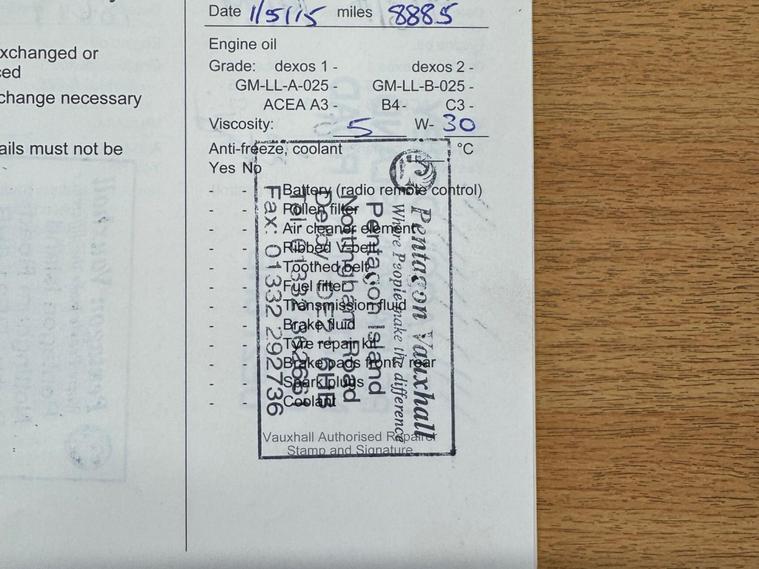 xchanged or
ced
change necessary
ails must not be
Date 1/5/15 miles 8885
Engine oil
Grade: dexos 1 - dexos 2 -
GM-LL-A-025 - GM-LL-B-025 -
ACEA A3 - B4 - C3 -
Viscosity: 5 W- 30
Anti-freeze, coolant °C
Yes No
- - Battery (radio remote control)
- - Pollen filter
- - Air cleaner element
- - Ribbed V-belt
- - Toothed belt
- - Fuel filter
- - Transmission fluid
- - Brake fluid
- - Tyre repair kit
- - Brake pads front / rear
- - Spark plugs
- - Coolant
Vauxhall Authorised Repairer
Stamp and Signature
Pentagon Vauxhall
Where People make the difference
Pentagon Island
Nottingham Road
Derby
Tel: 01332
Fax: 01332 292736